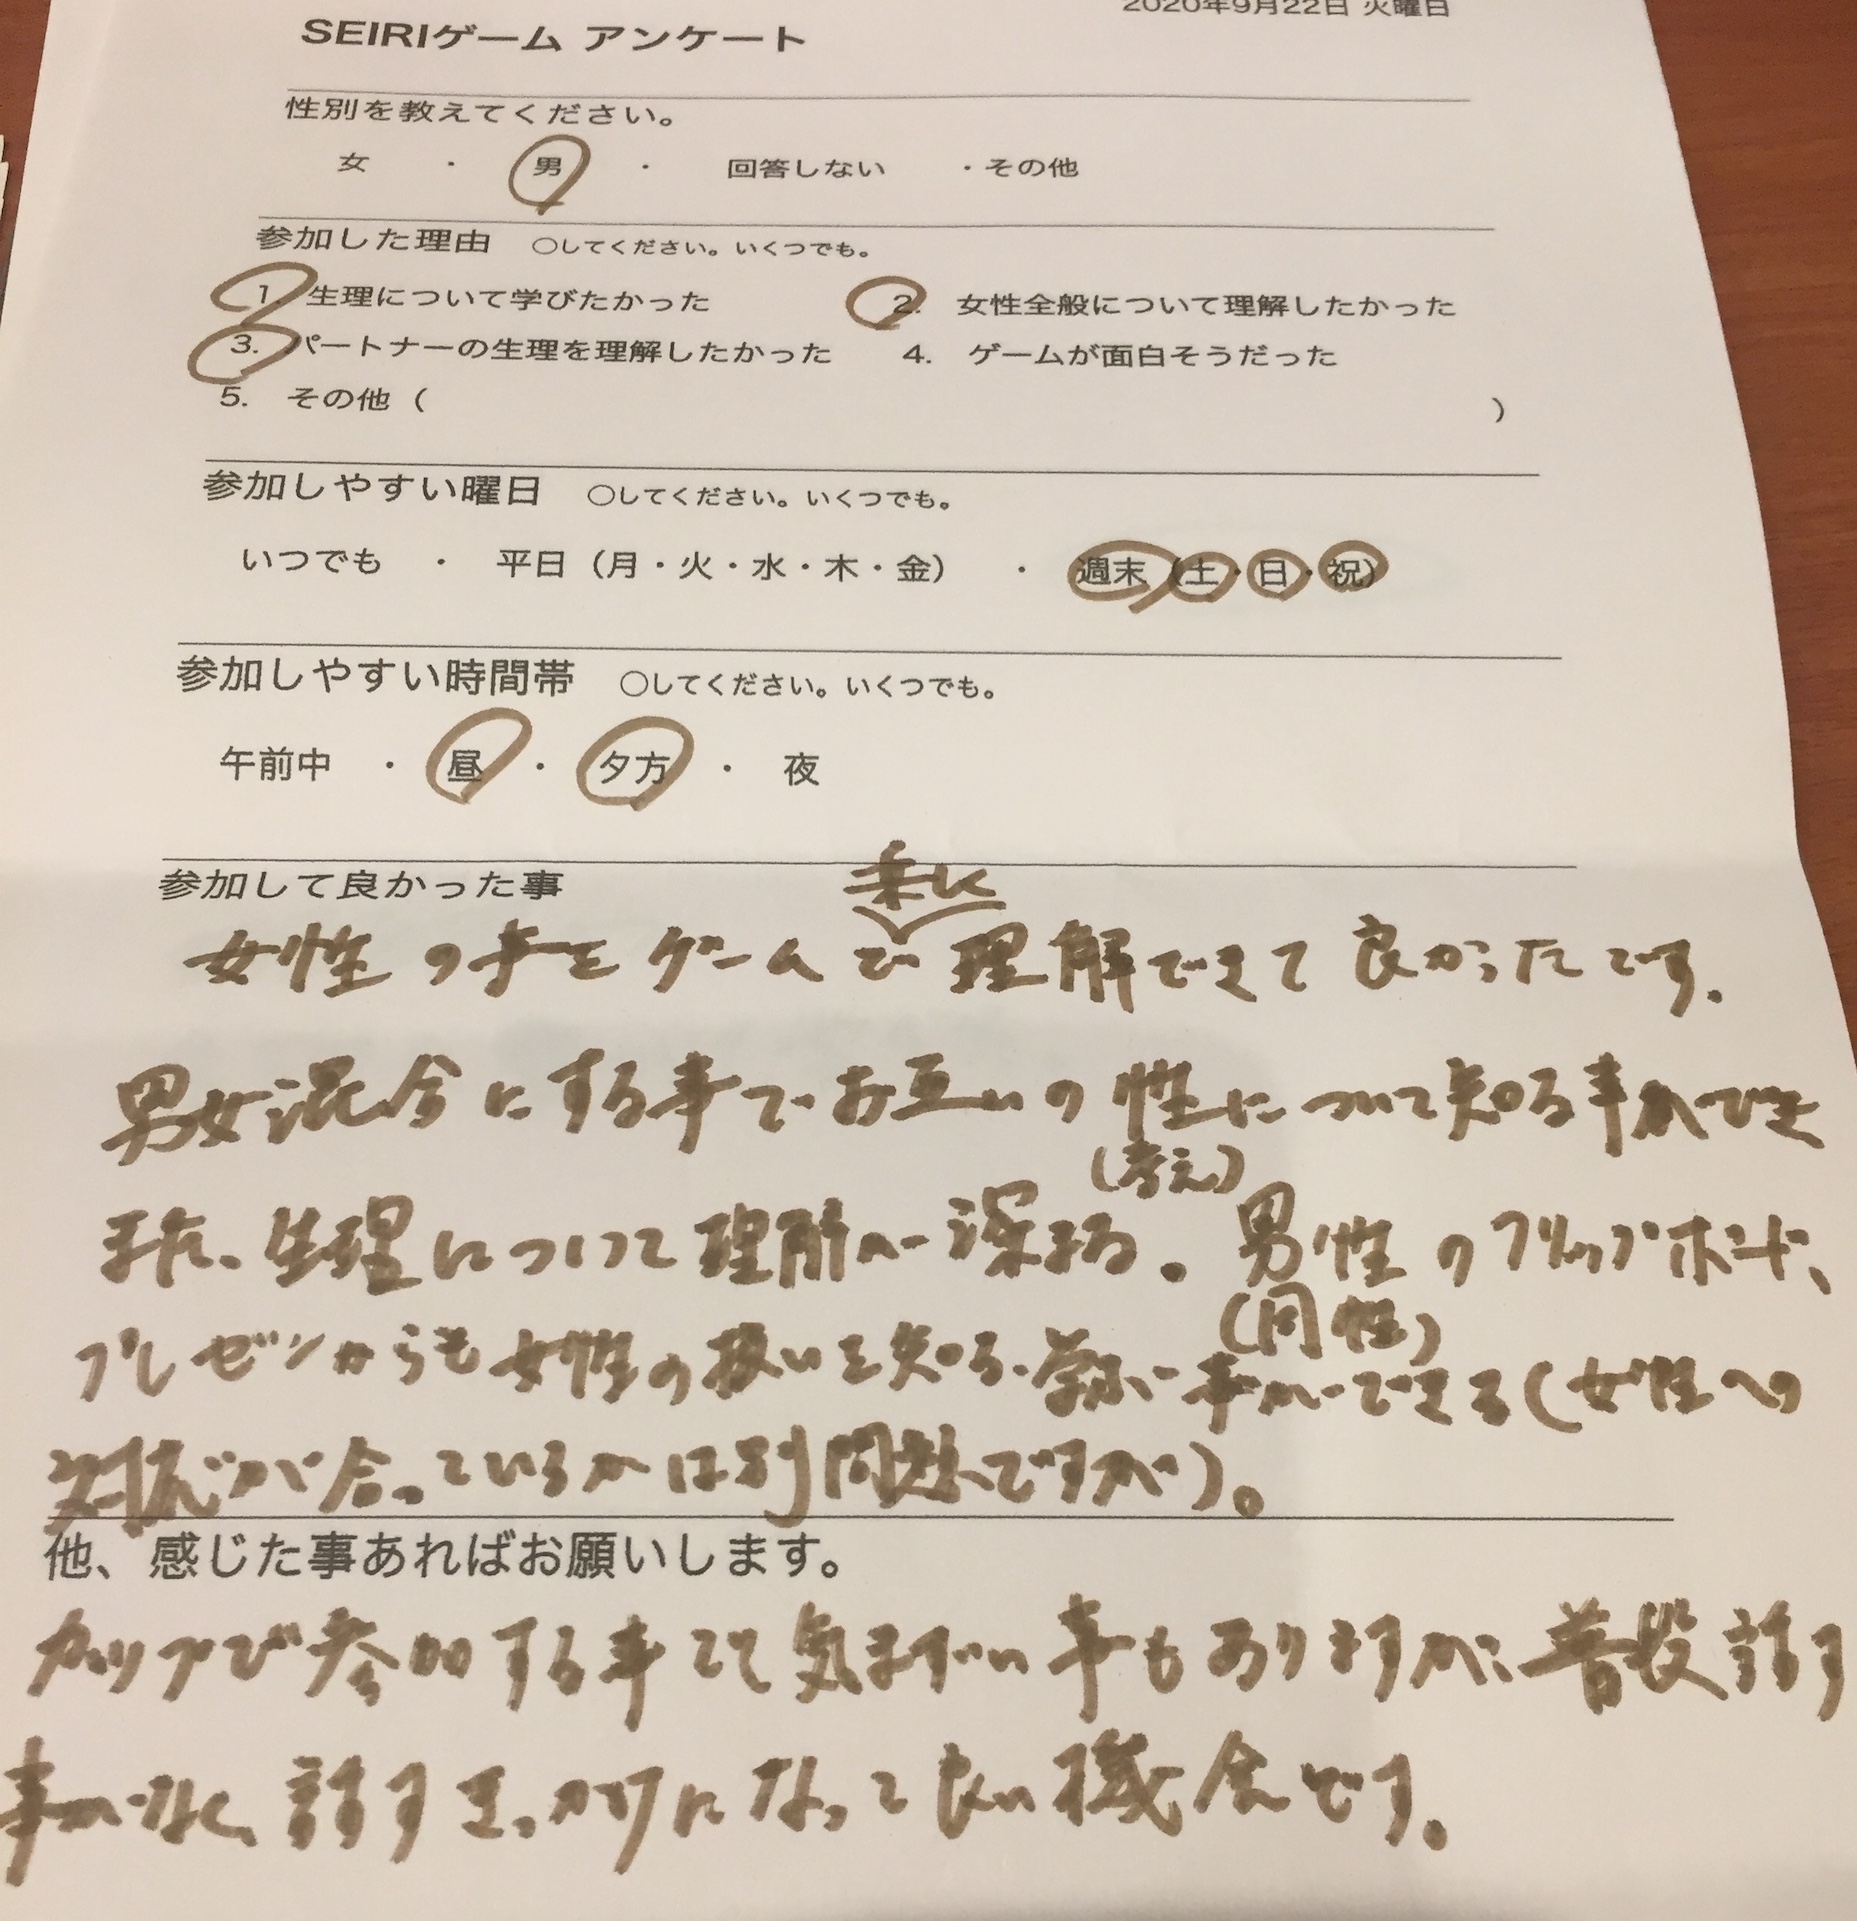 2020年9月22日 火曜日
SEIRIゲーム アンケート
性別を教えてください。
女 ・ 男 ・ 回答しない ・その他
参加した理由 ○してください。いくつでも。
1. 生理について学びたかった 2. 女性全般について理解したかった
3. パートナーの生理を理解したかった 4. ゲームが面白そうだった
5. その他（ ）
参加しやすい曜日 ○してください。いくつでも。
いつでも ・ 平日（月・火・水・木・金） ・ 週末（土・日・祝）
参加しやすい時間帯 ○してください。いくつでも。
午前中 ・ 昼 ・ 夕方 ・ 夜
参加して良かった事
楽しく
女性の事をゲームで理解できて良かったです.
男女混合にする事でお互いの性について知る事ができ
(考え)
また、生理について理解が深まる。男性のフリップボード、
(同性)
プレゼンからも女性の扱いを知る・学ぶ事ができる(女性への
対応が合っているかは別問題ですが)。
他、感じた事あればお願いします。
カップルで参加する事で気まずい事もありますが、普段話す
事がなく、話すきっかけになって良い機会です.